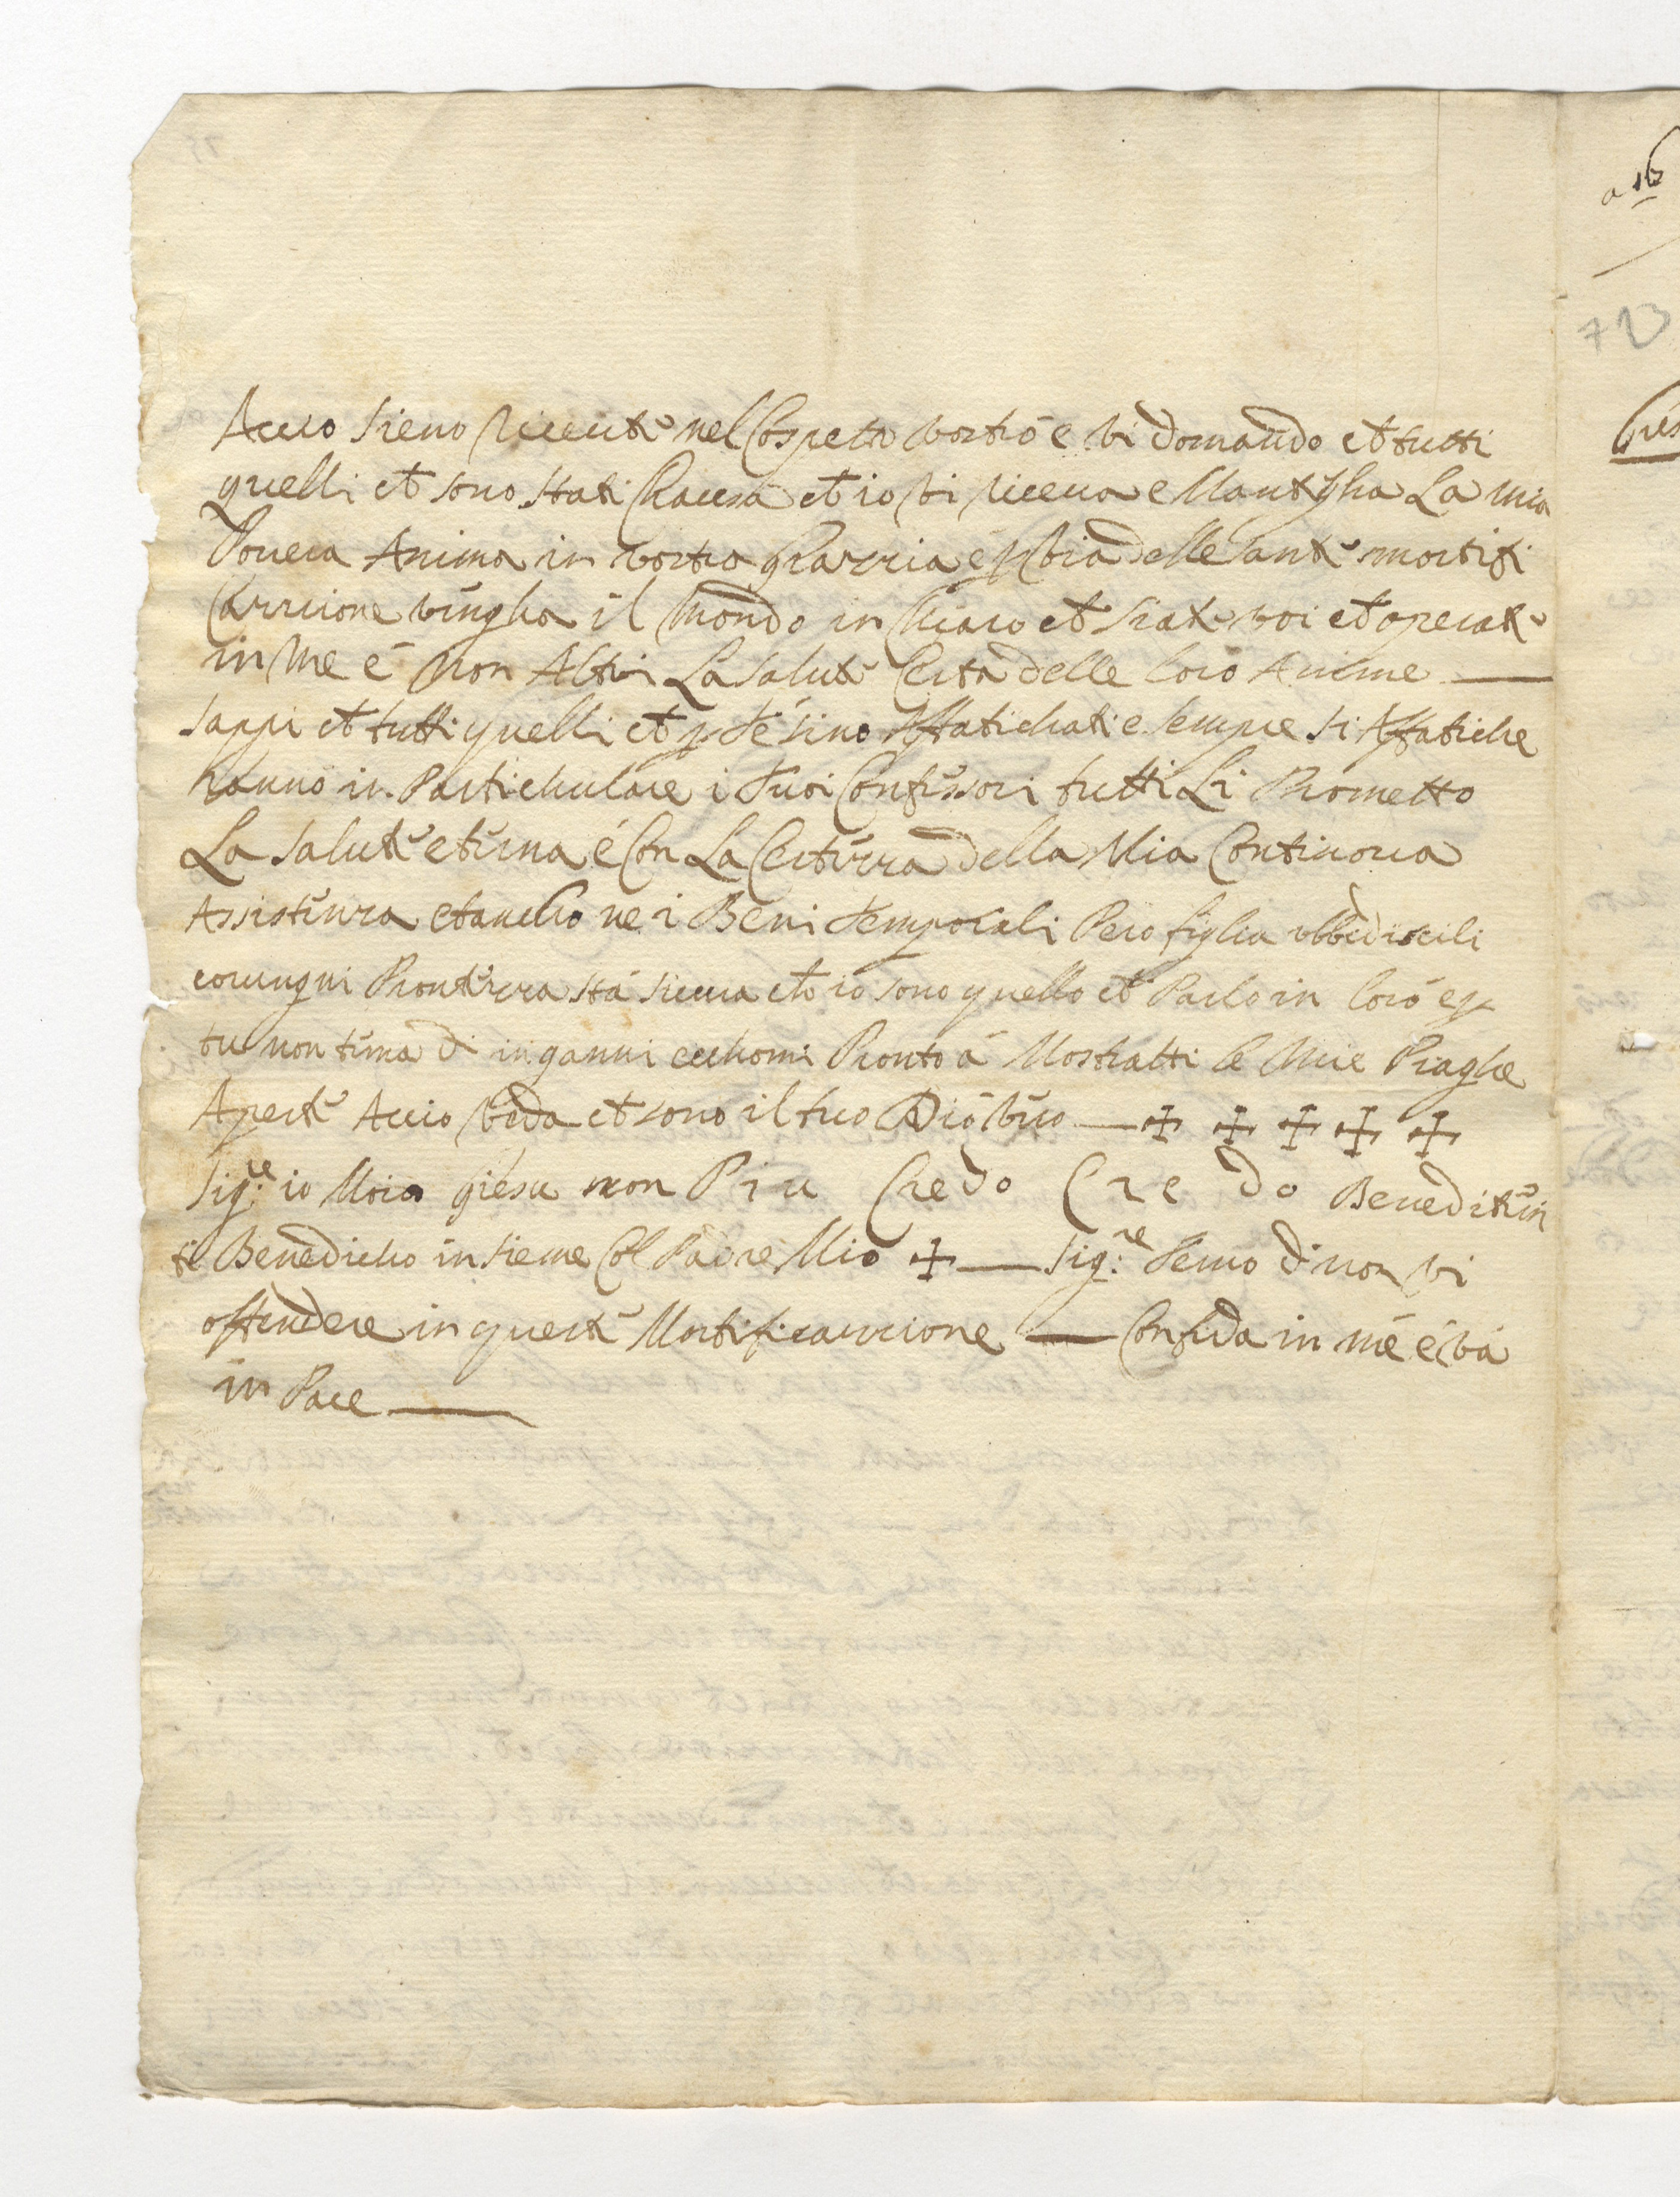 Accio sieno riceute nel Cospeto vostro e vi domando et tutti
quelli et sono stati Chausa et io vi riceva e Mantgha La mia
Povera Anima in vostra grazzia é p via delle sante mortifi
Cazzione vengha il Mondo in Chiaro et siate voi et operate
in Me é Non Altri La salute Certa delle loro Anime —
sappi et tutti quelli et p te sino Affatichati e sempre si Affatiche
ranno in Partichulare i tuoi Confessori tutti Li Prometto
La salute eterna é Con La Certezza della Mia Continova
Assistenza et anche ne i Beni Temporali Pero figlia obbediscili
con ungni Prontezza sta sicura et io sono quello et Parlo in loro e p
tu non tema di inganni echomi Pronto á Mostratti le Mie Piaghe
Aperte Accio veda et sono il tuo Dio vero — ✠ ✠ ✠ ✠ ✠
Sig:re io Moio giesu non Piu Credo Credo Benedite in
te Benedicho insieme Col Padre Mio ✠ — Sig:re Temo di non vi
offendere in queste Mortificazzione — Confida in mé é va
in Pace —
a 16
723